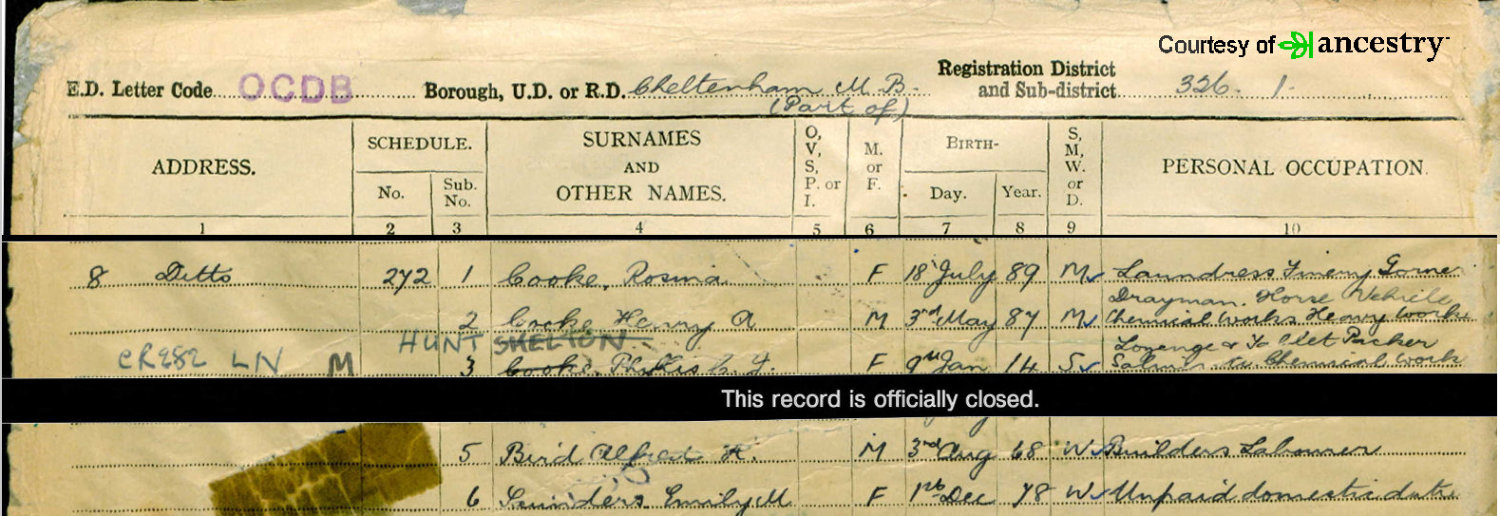 Courtesy of ancestry
E.D. Letter Code OCDB Borough, U.D. or R.D. Cheltenham M.B. (Part of) Registration District and Sub-district 326. 1.
ADDRESS. SCHEDULE. No. Sub. No. SURNAMES AND OTHER NAMES. O, V, S, P. or I. M. or F. BIRTH- Day. Year. S, M, W. or D. PERSONAL OCCUPATION.
1 2 3 4 5 6 7 8 9 10
8 Ditto 272 1 Cooke, Rosina F 18 July 89 M Laundress
Drayman. Horse Vehicle
2 Cooke Henry A M 3rd May 87 M Chemical Works Heavy Work
HUNT SKELTON
Lozenge & Toilet Packer
CR282 LN M 3 Cooke, Phyllis F 9th Jan 14 S Chemical Work
This record is officially closed.
5 Bird Alfred H. M 3rd Aug 68 W Builders Labourer
6 Saunders Emily M F 1st Dec 78 W Unpaid domestic dutie